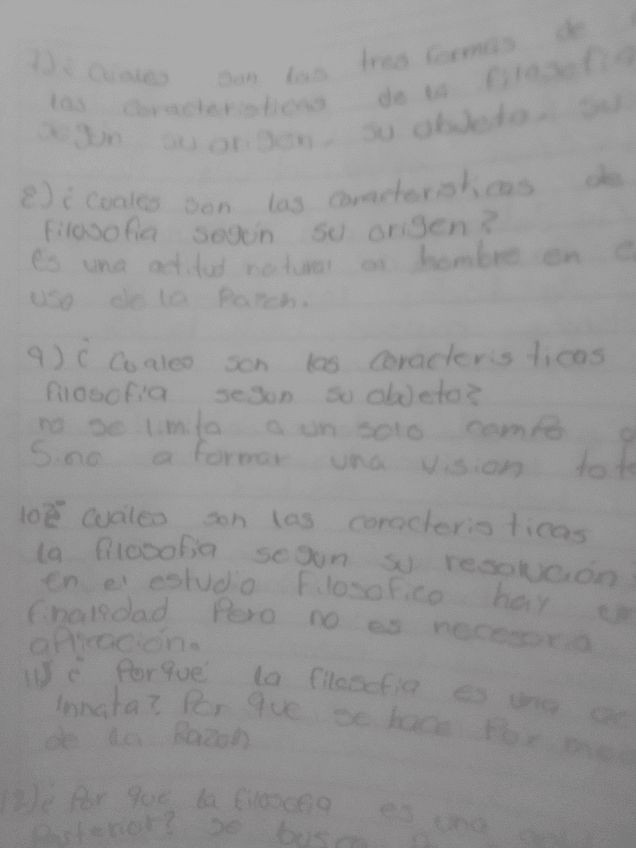 7) ¿ Cuales son las tres formas de
las caracteristicas de la filosofia
segun su origen, su objeto, su
8) ¿ Cuales son las caracteristicas de
filosofia según su origen?
es una actitud natural en hombre en e
uso de la Razon.
9) ¿ Cuales son las caracteristicas
filosofia segun su objeto?
no se limita a un solo campo
Sino a formar una vision tota
10) ¿ Cuáles son las caracteristicas
la filosofia segun su resolución
en el estudio filosofico hay un
finalidad Pero no es necesaria
aplicación.
11) ¿ Porqué la filosofia es una
innata? Por que se hace Por med
de la Razon
12) ¿ Por que la filosofia es una
Posterior? se busca